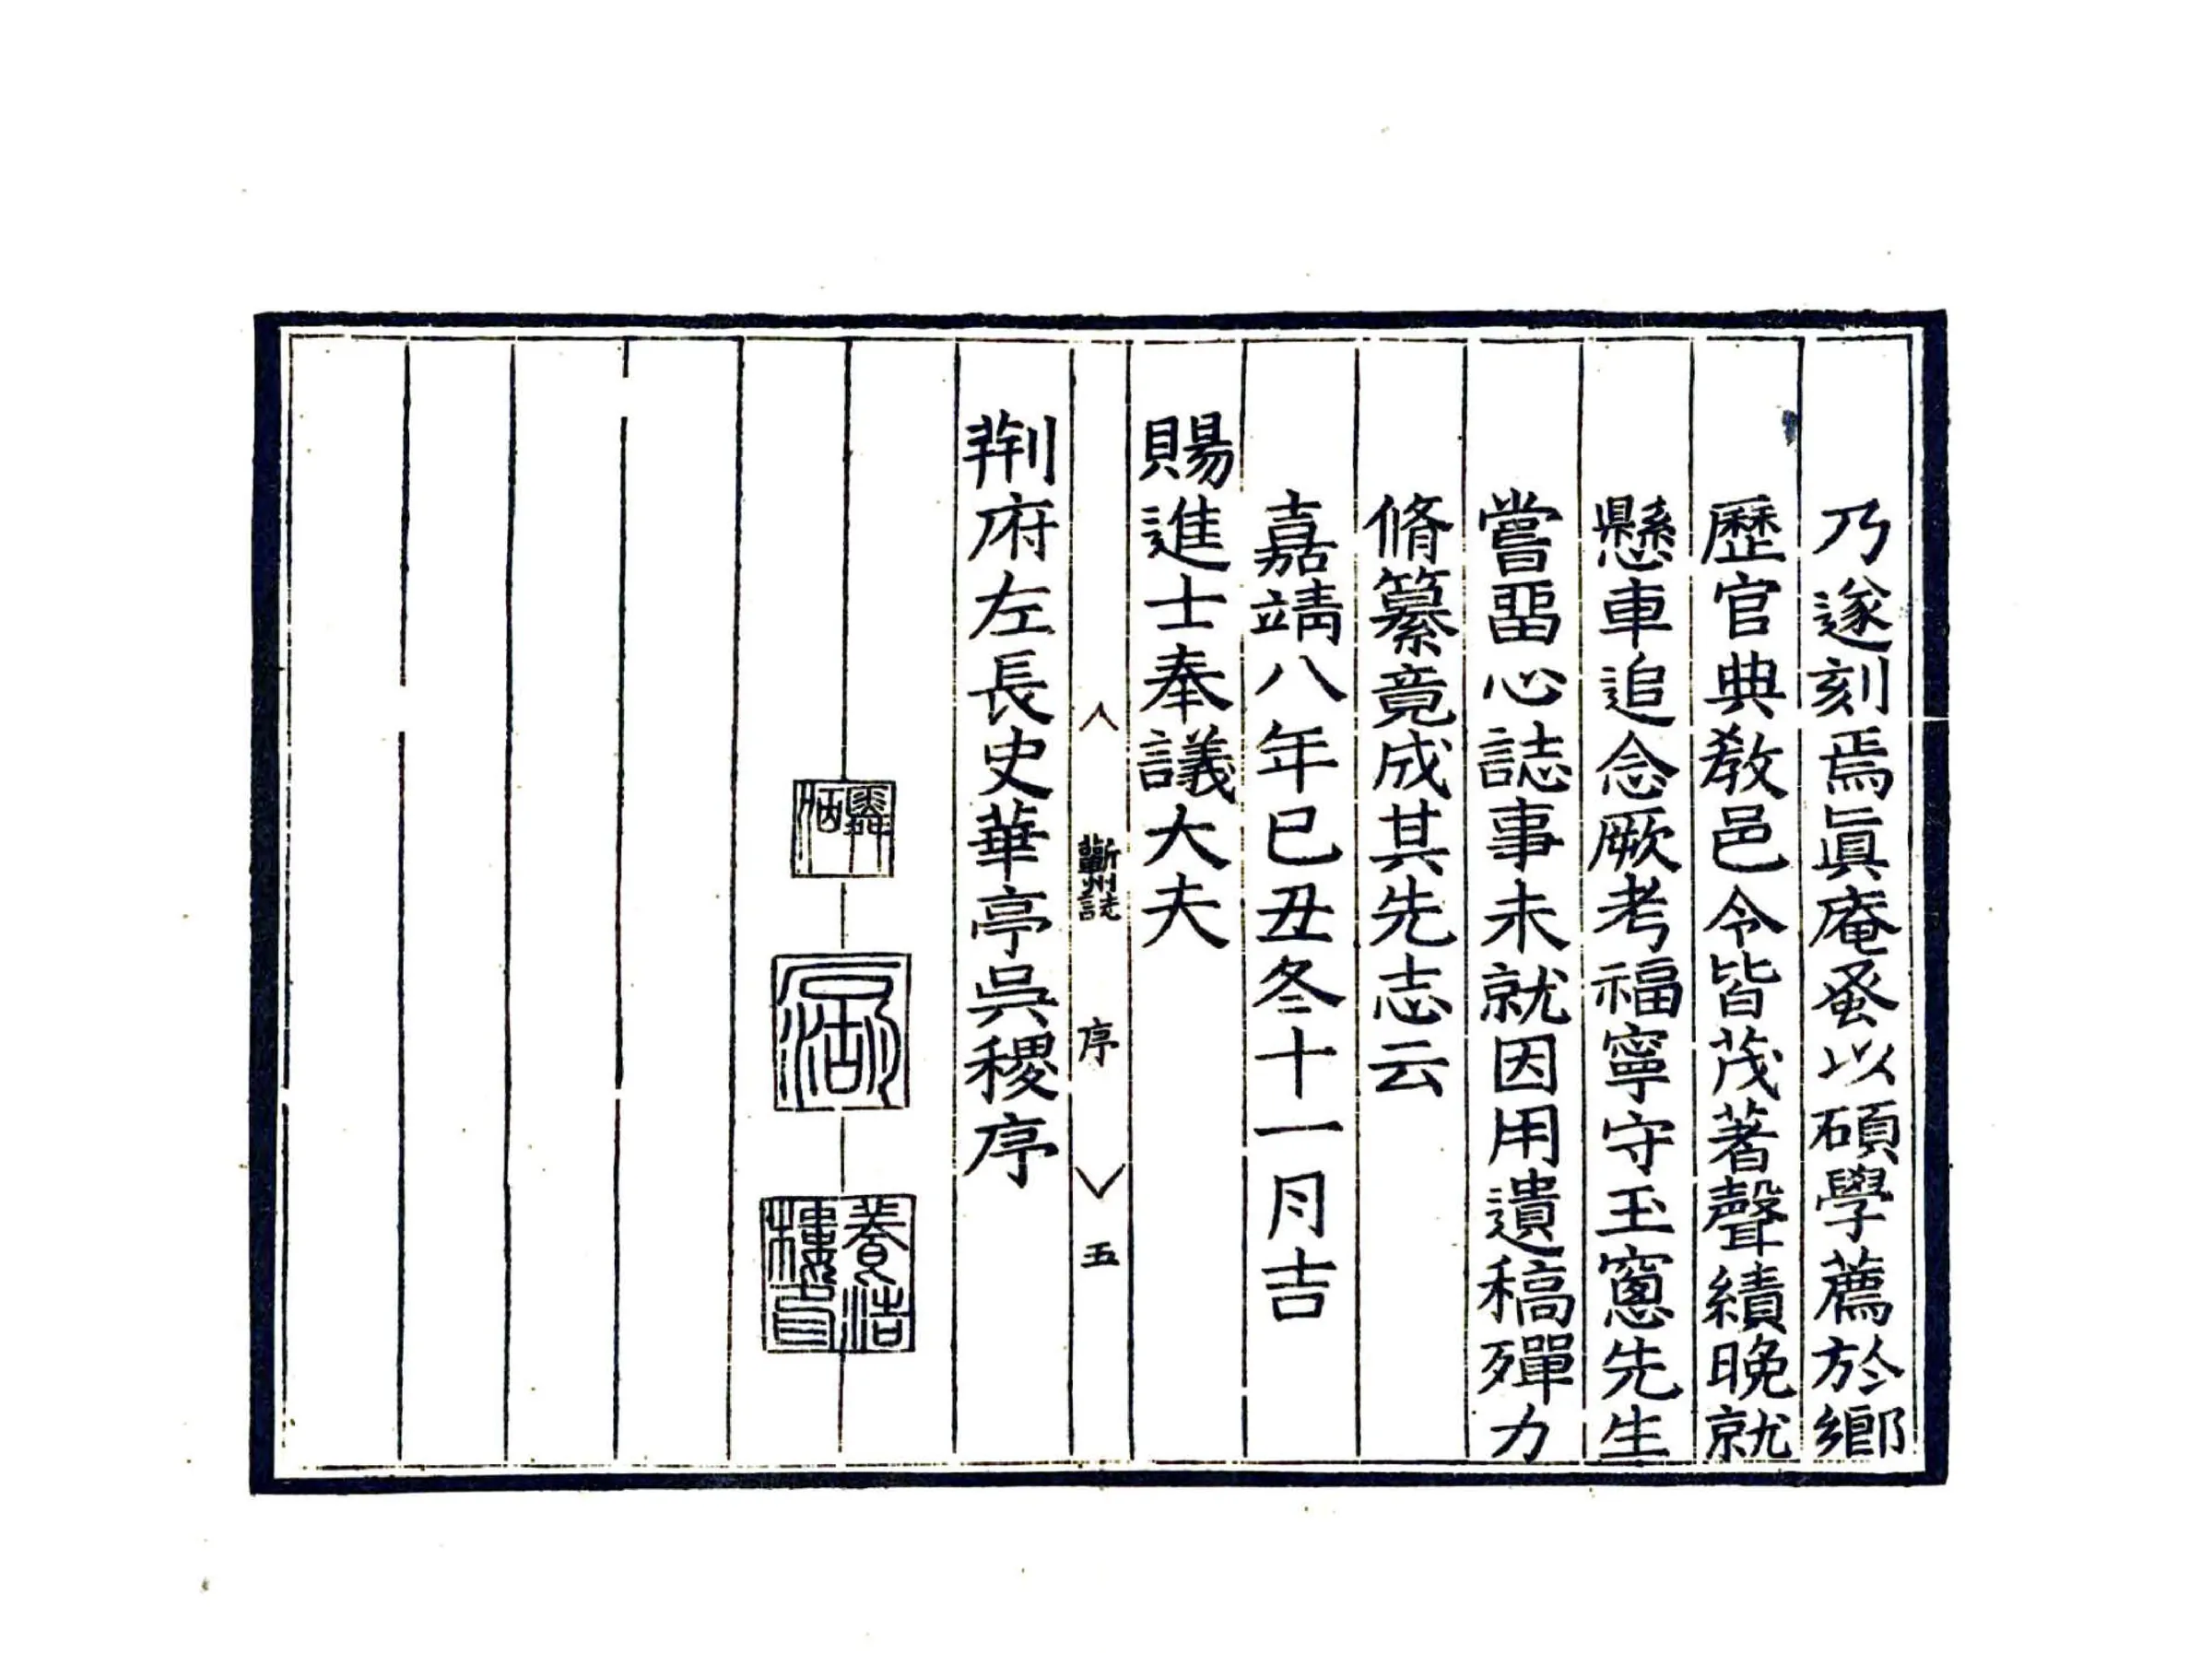 乃遂刻焉眞庵蚤以碩學薦於鄉
歷官典教邑令皆茂著聲績晚就
懸車追念厥考福寧守玉窻先生
嘗畱心誌事未就因用遺稿殫力
脩纂竟成其先志云
嘉靖八年已丑冬十一月吉
賜進士奉議大夫
蘄州誌 序 五
荆府左長史華亭吳稷序